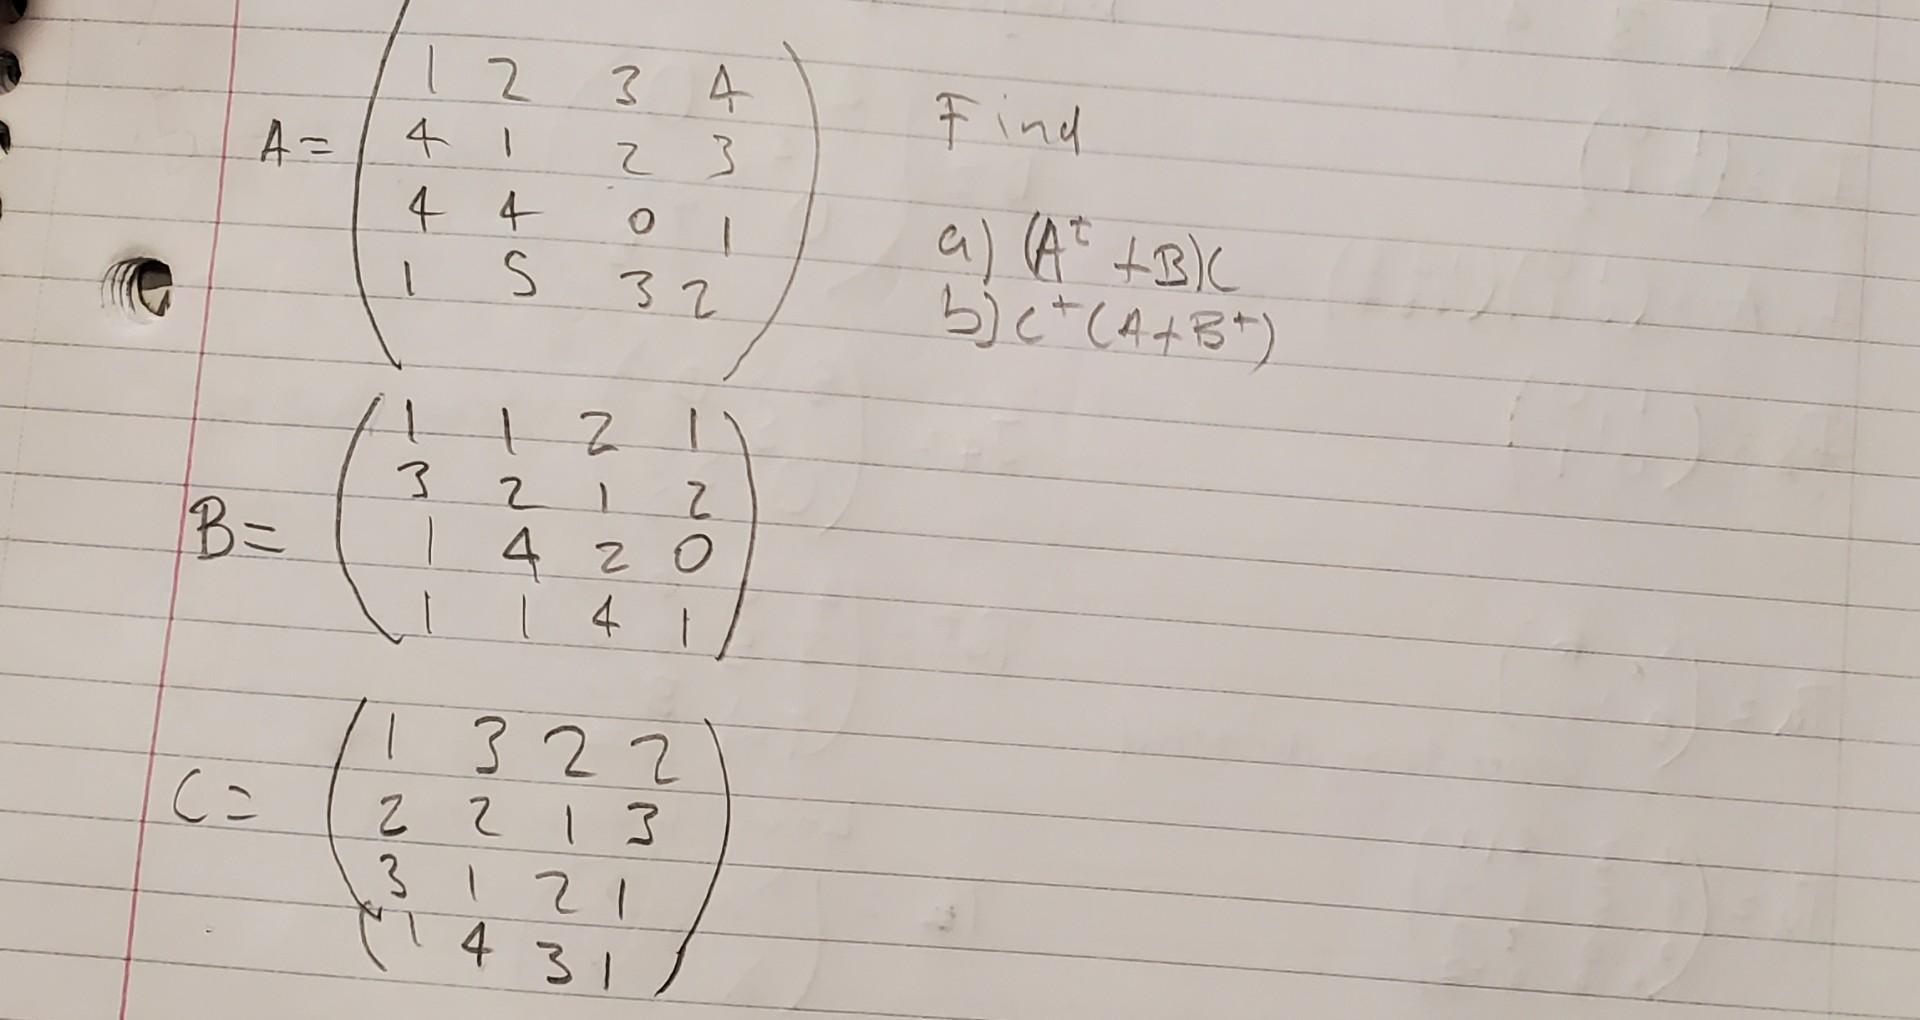 A= ( 1 2 3 4
4 1 2 3
4 4 0 1
1 5 3 2 )
Find
a) (Aᵗ + B)C
b) Cᵗ(A+Bᵗ)
B= ( 1 1 2 1
3 2 1 2
1 4 2 0
1 1 4 1 )
C= ( 1 3 2 2
2 2 1 3
3 1 2 1
1 4 3 1 )